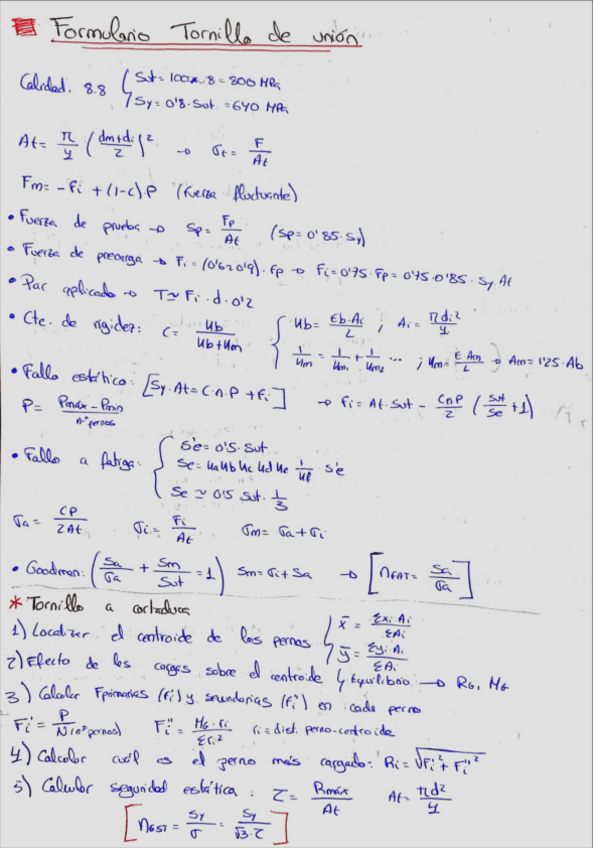 Formulario Tornillo de unión
Calidad. 8.8 { Sut = 100 x 8 = 800 MPa
Sy = 0'8 · Sut = 640 MPa
At = π/4 (dm+di/2)² → σt = F/At
Fm = -Fi + (1-c)·P (fuerza fluctuante)
• Fuerza de prueba → Sp = Fp/At (Sp = 0'85·Sy)
• Fuerza de precarga → Fi = (0'6 a 0'9)·Fp → Fi = 0'75·Fp = 0'75·0'85·Sy·At
• Par aplicado → T ≃ Fi·d·0'2
• Cte. de rigidez: C = Kb/Kb+Km { Kb = Eb·Ai/L ; Ai = πdi²/4
1/Km = 1/Km₁ + 1/Km₂ ... ; Km = E·Am/L → Am = 1'25·Ab
• Fallo estático: [Sy·At = C·n·P + Fi] → Fi = At·Sut - CnP/2 (Sut/Se + 1)
P = Pmáx - Pmin/nº pernos
• Fallo a fatiga: { S'e = 0'5·Sut
Se = Ka Kb Kc Kd Ke 1/Kf · S'e
Se ≃ 0'5 Sut · 1/3
σa = CP/2At σi = Fi/At σm = σa + σi
• Goodman: (Sa/σa + Sm/Sut = 1) Sm = σi + Sa → [nFAT = Sa/σa]
* Tornillo a cortadura
1) Localizar el centroide de los pernos { x̄ = Σxi·Ai/ΣAi
ȳ = Σyi·Ai/ΣAi
2) Efecto de las cargas sobre el centroide ↳ Equilibrio → RG, MG
3) Calcular Fprimarias (Fi') y secundarias (Fi'') en cada perno
Fi' = P/N (nº pernos) Fi'' = MG·ri/Σri² ri = dist. perno-centroide
4) Calcular cuál es el perno más cargado: Ri = √Fi'² + Fi''²
5) Calcular seguridad estática: τ = Rmáx/At At = πd²/4
[nEST = Sy/σ = Sy/√3·τ]